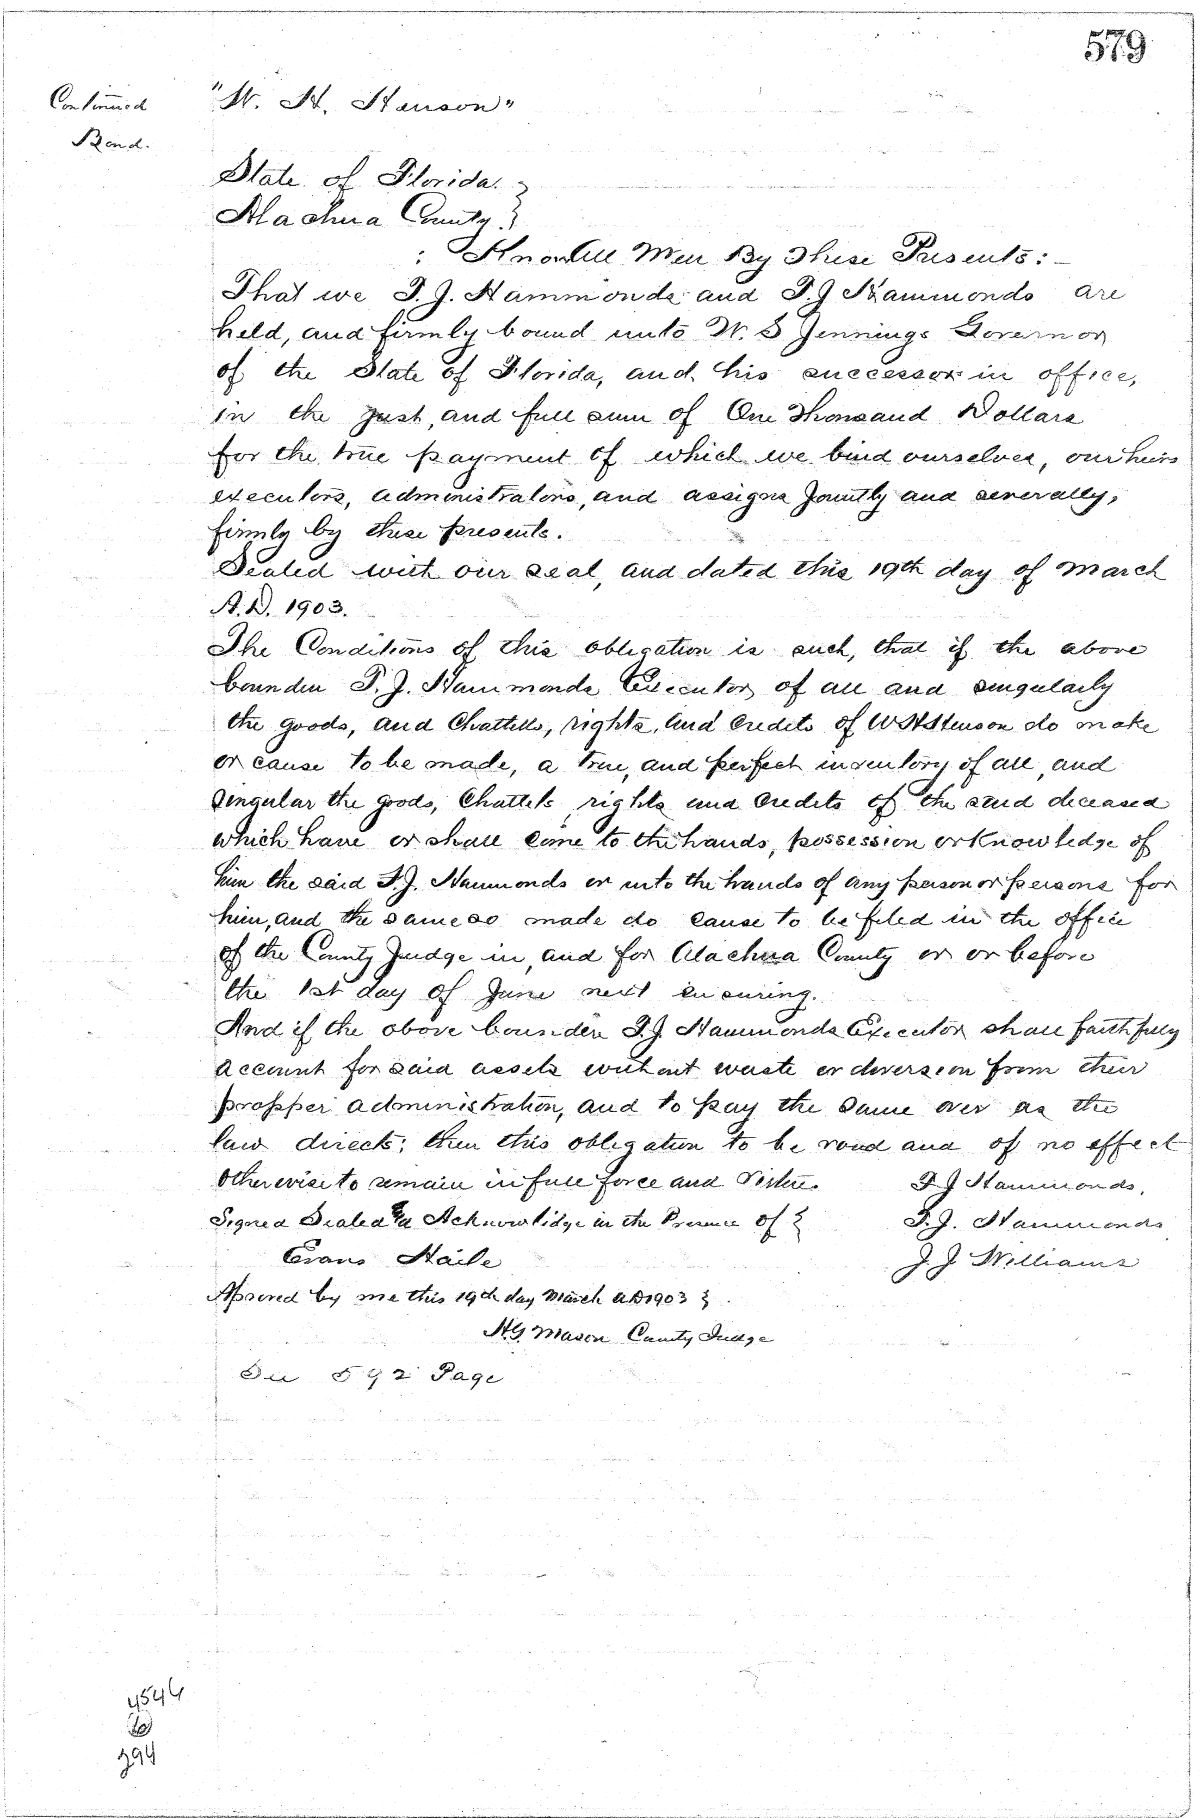 579
Continued "W. H. Stenson"
Bond.
State of Florida. }
Alachua County. }
: Know All Men By These Presents:-
That we T. J. Hammonds and T. J Hammonds are
held, and firmly bound unto W. S Jennings Governor
of the State of Florida, and his successor in office,
in the just, and full sum of One Thousand Dollars
for the true payment of which we bind ourselves, our heirs
executors, administrators, and assigns jointly and severally,
firmly by these presents.
Sealed with our seal, and dated this 19th day of March
A.D. 1903.
The Conditions of this obligation is such, that if the above
bounden T. J. Hammonds Executor, of all and singularly
the goods, and Chattells, rights, and Credits of W H Stenson do make
or cause to be made, a true, and perfect inventory of all, and
singular the goods, Chattels, rights and Credits of the said deceased
which have or shall come to the hands, possession or Knowledge of
him the said T. J. Hammonds or unto the hands of any person or persons for
him, and the same so made do cause to be filed in the office
of the County Judge in, and for Alachua County or or before
the 1st day of June next ensuring.
And if the above bounden T. J. Hammonds Executor shall faithfully
account for said assets without waste or diversion from their
propper administration, and to pay the same over as the
law directs; then this obligation to be void and of no effect
otherwise to remain in full force and virtue. T J Hammonds.
Signed Sealed & Acknowlidge in the Presence of } T. J. Hammonds
Evans Haile J. J Williams
Approved by me this 19th day March A.D 1903 }
H.G. Mason County Judge
See 592 Page
4544
394